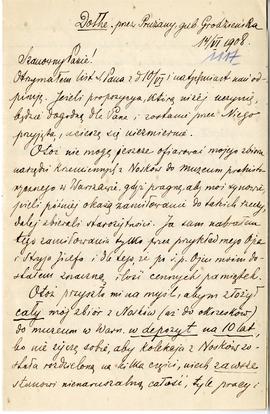 Dołhe, przez Prużany, gub. Grodzieńska
14/VI 1908.
Szanowny Panie!
Otrzymałem list Pana z d. 10/VI i natychmiast nań od-
pisuję. Jeżeli propozycya, którą niżej uczynię,
będzie dogodną dla Pana i zostanie przez Niego
przyjętą, ucieszę się niezmiernie.
Otóż nie mogę jeszcze ofiarować mojego zbioru
narzędzi krzemiennych z Nosków do muzeum
w Warszawie, gdyż pragnę, aby moi synowie,
jeżeli później okażą zamiłowanie do takich rzeczy,
dalej zbierali starożytności. Ja sam nabrałem
tego zamiłowania tylko przez przykładnego Ojca
i Stryja Józefa i dla tego, że po ś.p. Ojcu moim do-
stałem znaczną ilość cennych pamiątek.
Otóż przyszło mi na myśl, abym złożył
cały mój zbiór z Nosków (aż do okrzesków)
do muzeum w Warsz. w depozyt na 10 lat,
bo nie życzę sobie, aby kolekcja z Nosków zo-
stała rozdzieloną na kilka części, niech zawsze
stanowi nienaruszalną całość, tyle pracy i